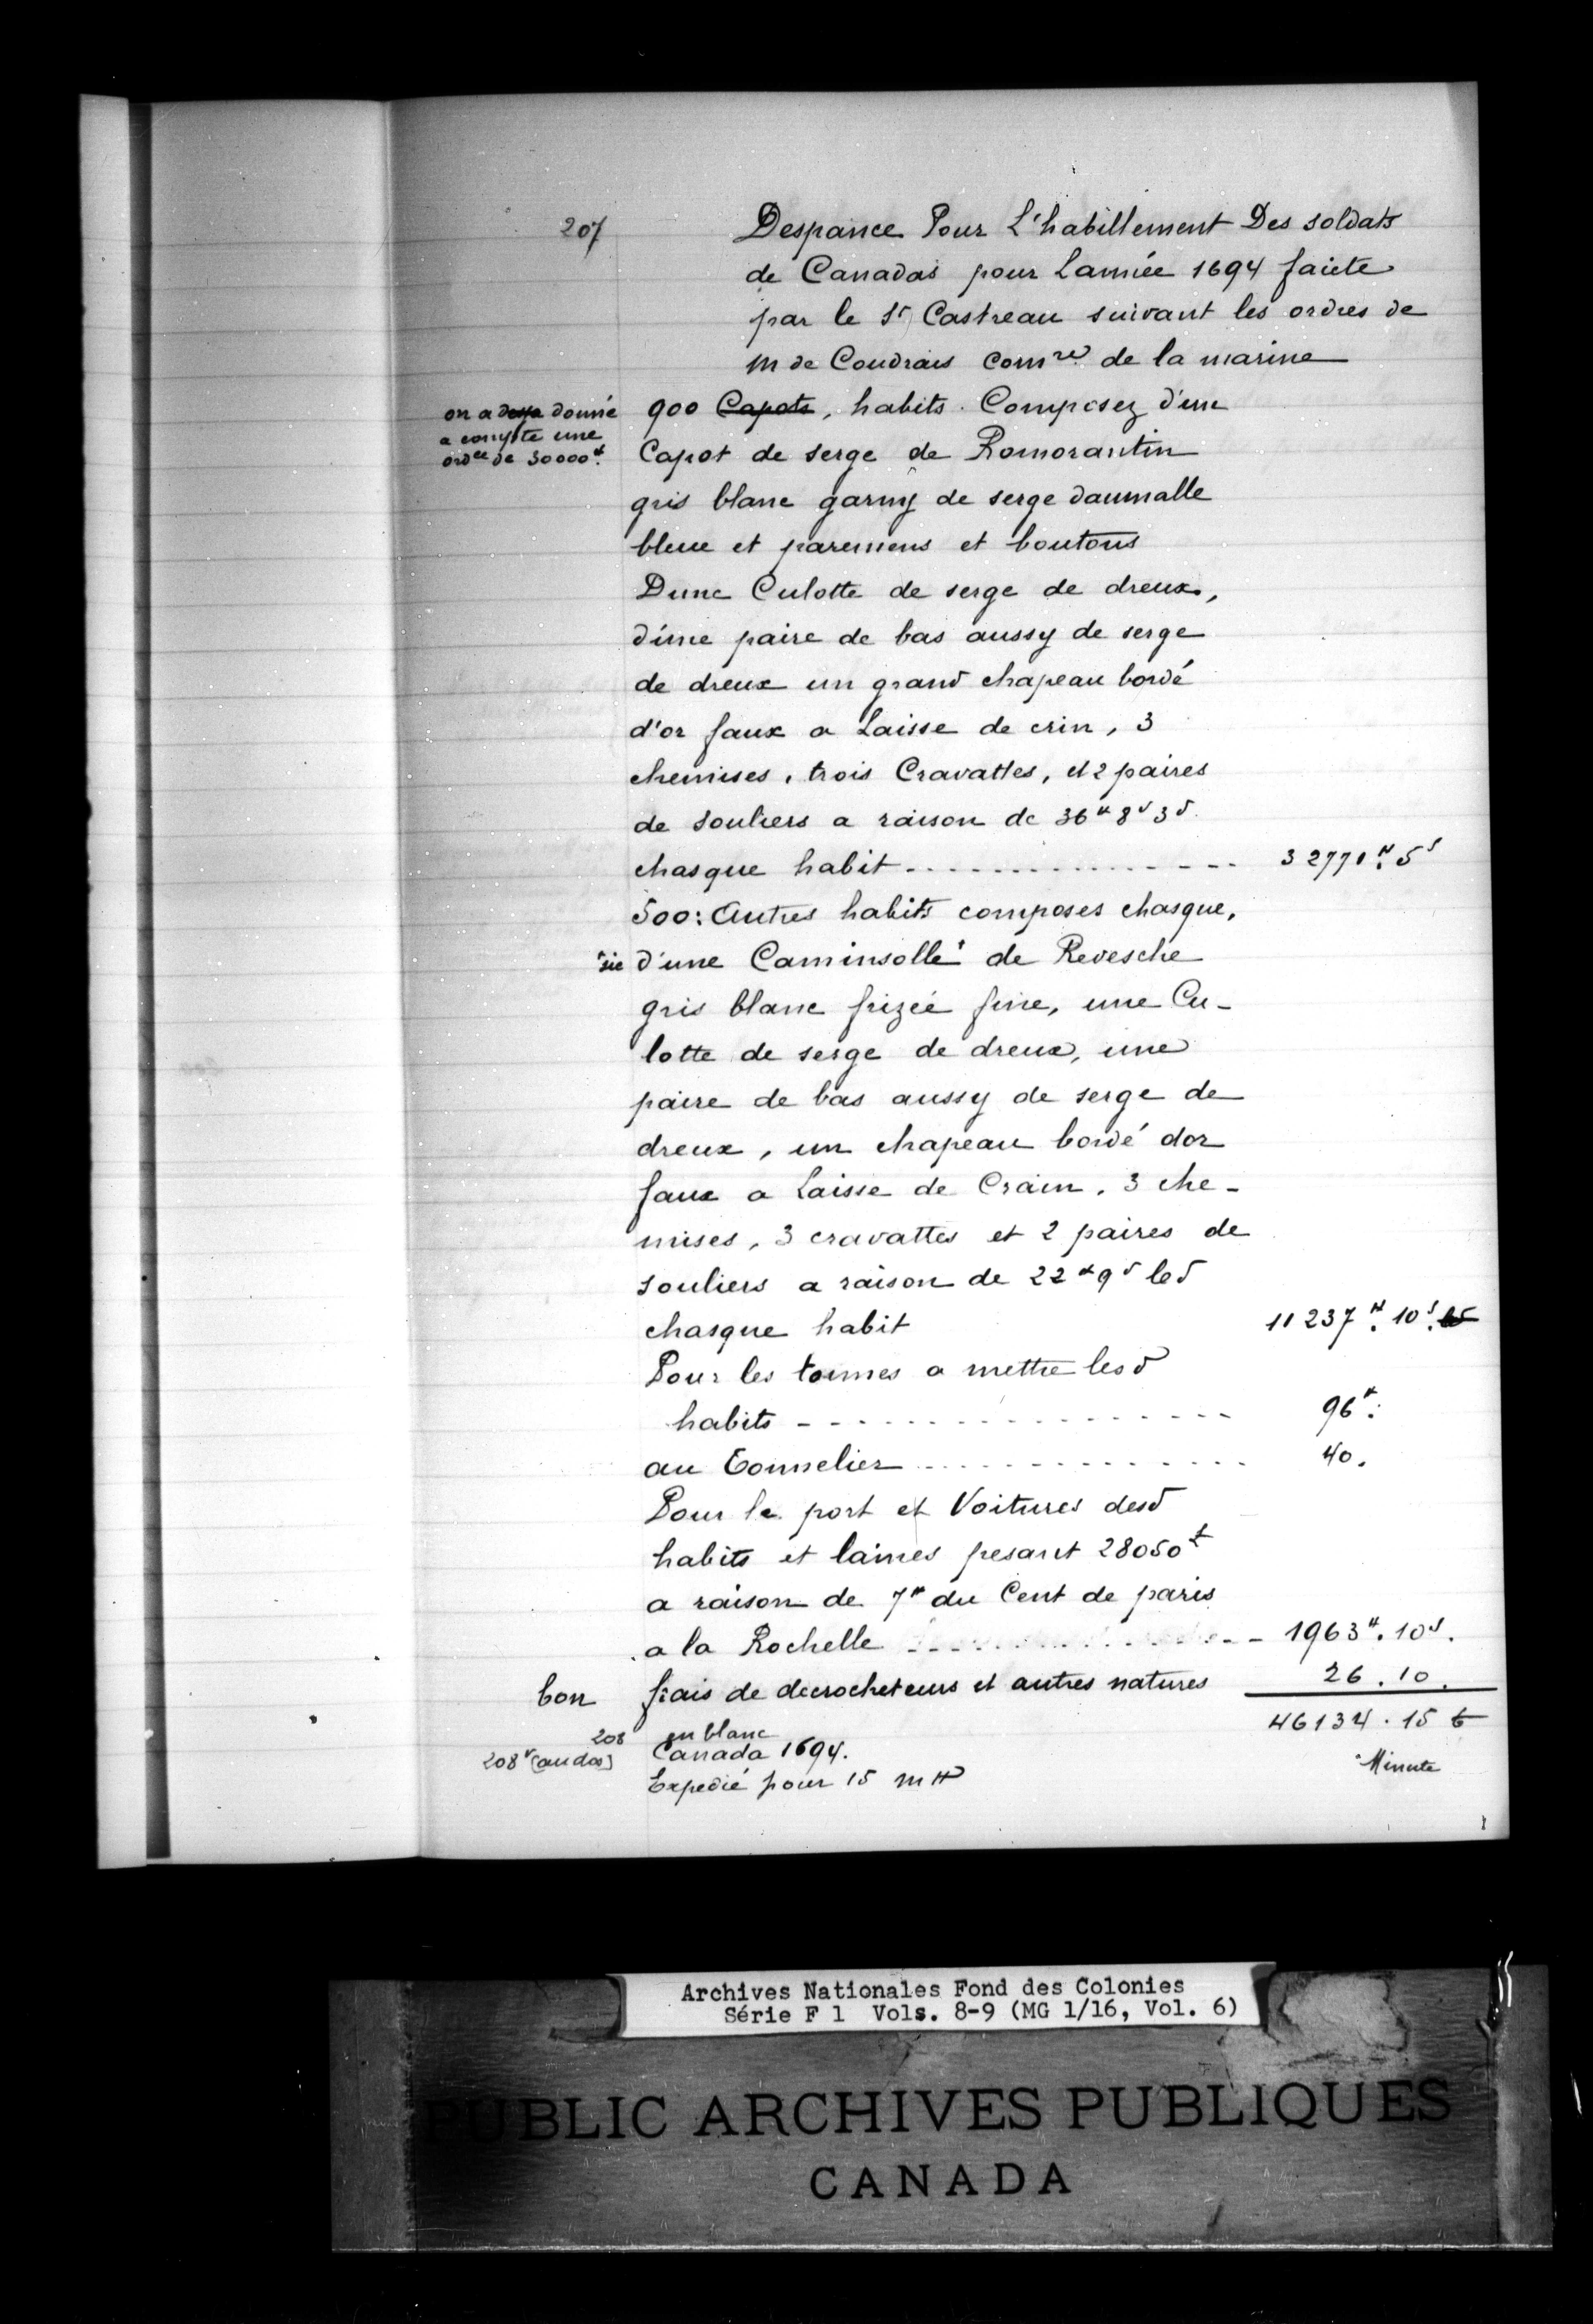 207
Despance Pour L'habillement Des soldats
de Canadas pour Lannée 1694 faicte
par le Sr Castreau suivant les ordres de
M de Coudrais Comre de la marine
on a donné
a compte une
ordce de 30000ᵗᵗ.
900 Capots, habits. Composez d'un
Capot de serge de Romorantin
gris blanc garny de serge daumalle
bleue et paremens et boutons
Dune Culotte de serge de dreux,
d'une paire de bas aussy de serge
de dreux un grand chapeau bordé
d'or faux a Laisse de crin, 3
chemises, trois Cravattes, et 2 paires
de souliers a raison de 36ᵗᵗ 8ˢ 3ᵈ.
chasque habit - - - - - - - - - - 32771ᵗᵗ. 5ˢ
500: Autres habits composes chasque,
'sic d'une Caminsolle' de Revesche
gris blanc frizée fine, une Cu-
lotte de serge de dreux, une
paire de bas aussy de serge de
dreux, un chapeau bordé dor
faux a Laisse de Crain. 3 che-
mises, 3 cravattes et 2 paires de
souliers a raison de 22ᵗᵗ 9ˢ led
chasque habit 11237ᵗᵗ. 10ˢ.
Pour les tonnes a mettre lesd
habits - - - - - - - - - - 96ᵗᵗ.
au Tonnelier - - - - - - - - - - 40.
Pour le port et Voitures desd
habits et laines pesant 28050ᵗ
a raison de 7ᵗᵗ du Cent de paris
a la Rochelle - - - - - - - - - - 1963ᵗᵗ. 10ˢ.
bon frais de decrocheteurs et autres natures 26. 10.
46134. 15
208 en blanc
208ᵛ [au dos] Canada 1694. Minute
Expedié pour 15 mᵗᵗ
Archives Nationales Fond des Colonies
Série F 1 Vols. 8-9 (MG 1/16, Vol. 6)
PUBLIC ARCHIVES PUBLIQUES
CANADA